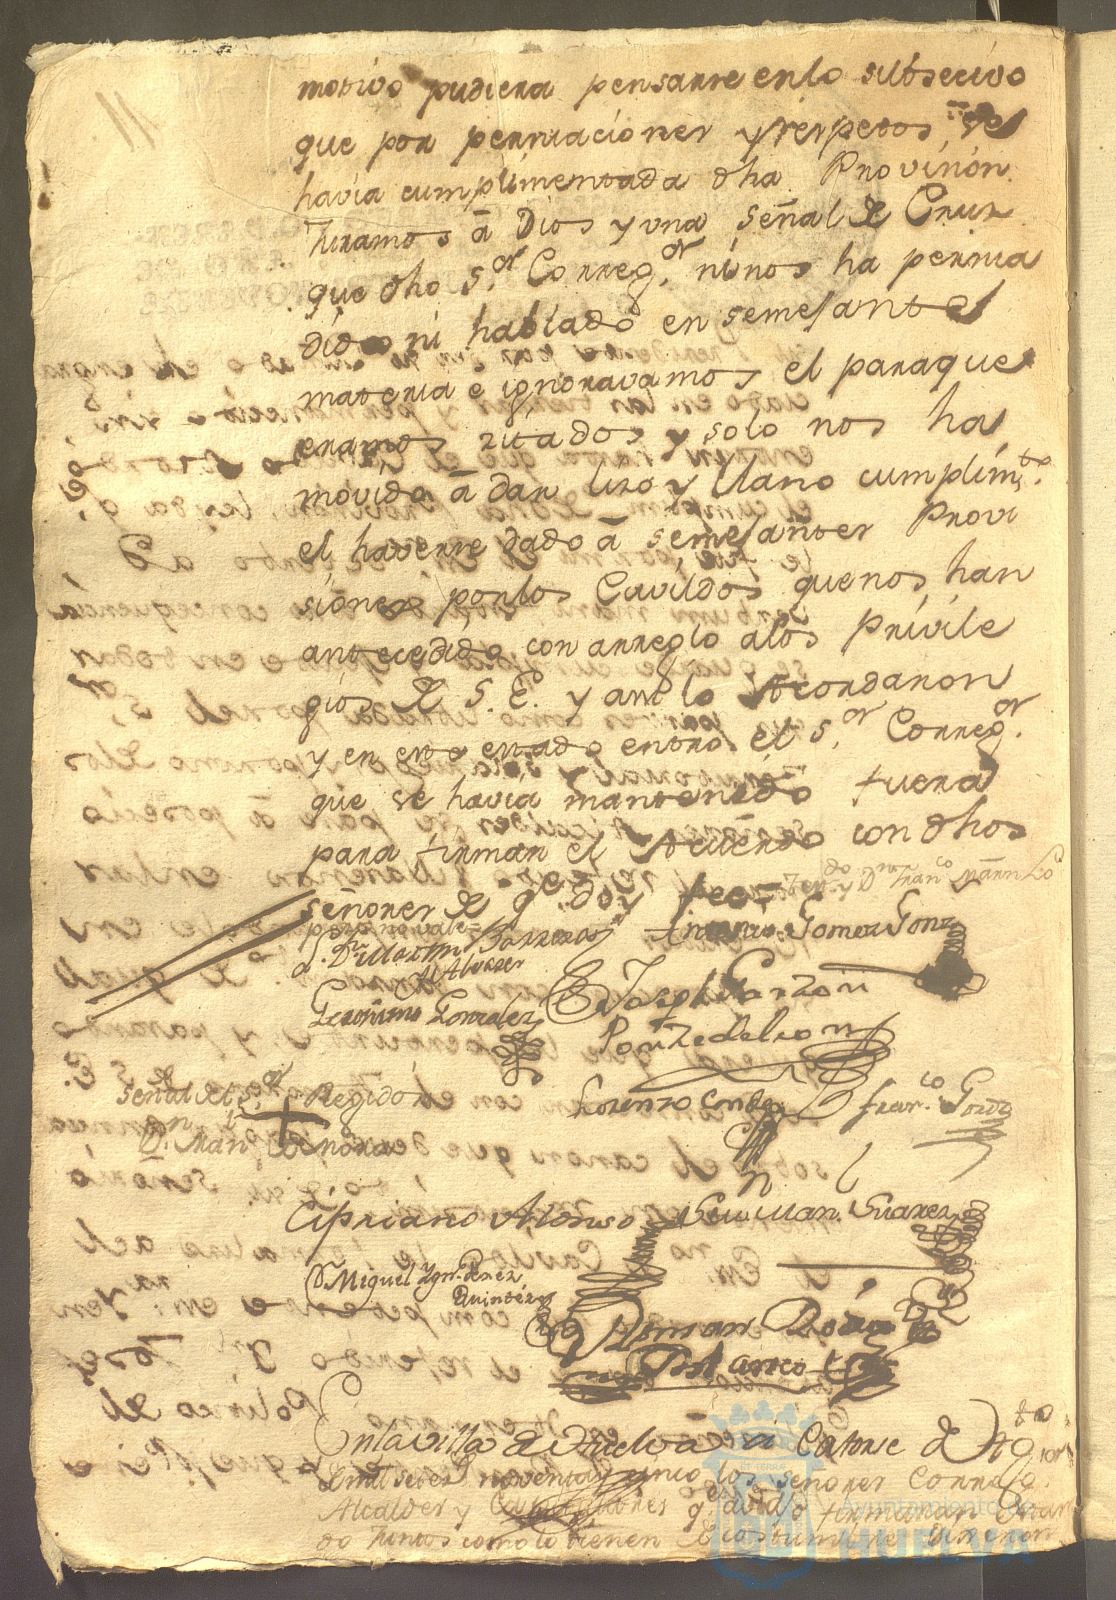 motivo pudiera pensarse en lo subsecivo
que por persuaciones y respetos se
havia cumplimentada dha. Provision.
Juramos â Dios y una señal de Cruz
que dho S.or Correg.or ni nos ha persua
dido ni hablado en semejante
materia e ignoravamos el paraque
eramos zitados y solo nos ha
movido â dar liso y llano cumplim.to
el haverse dado â semejantes Provi
siones por los Cavildos que nos han
antecedido con arreglo alos Privile
gios de S. E. y asi lo Acordaron
y en este estado entro el S.or Correg.or
que se havia mantenido fuera
para firmar el Acuerdo con dhos
señores de q.e doy fee=
Geronimo Gonzalez
Joseph Garzon
Ponze de Leon
Señal del S.or Regidor
D.n Man.l
+
Lorenzo
Fran.co Gonz
Cipriano Alonso
Man. Suarez
D. Miguel Ygn. Perez
Quintero
Roman
En la villa de Huelva en Catorse de Ag.to
de mil setes noventa y cinco los señores Correg.or
Alcaldes y Capitulares q.e avajo firmaran Estan
do Juntos como lo tienen de costumbre
Ayuntamiento de
HUELVA